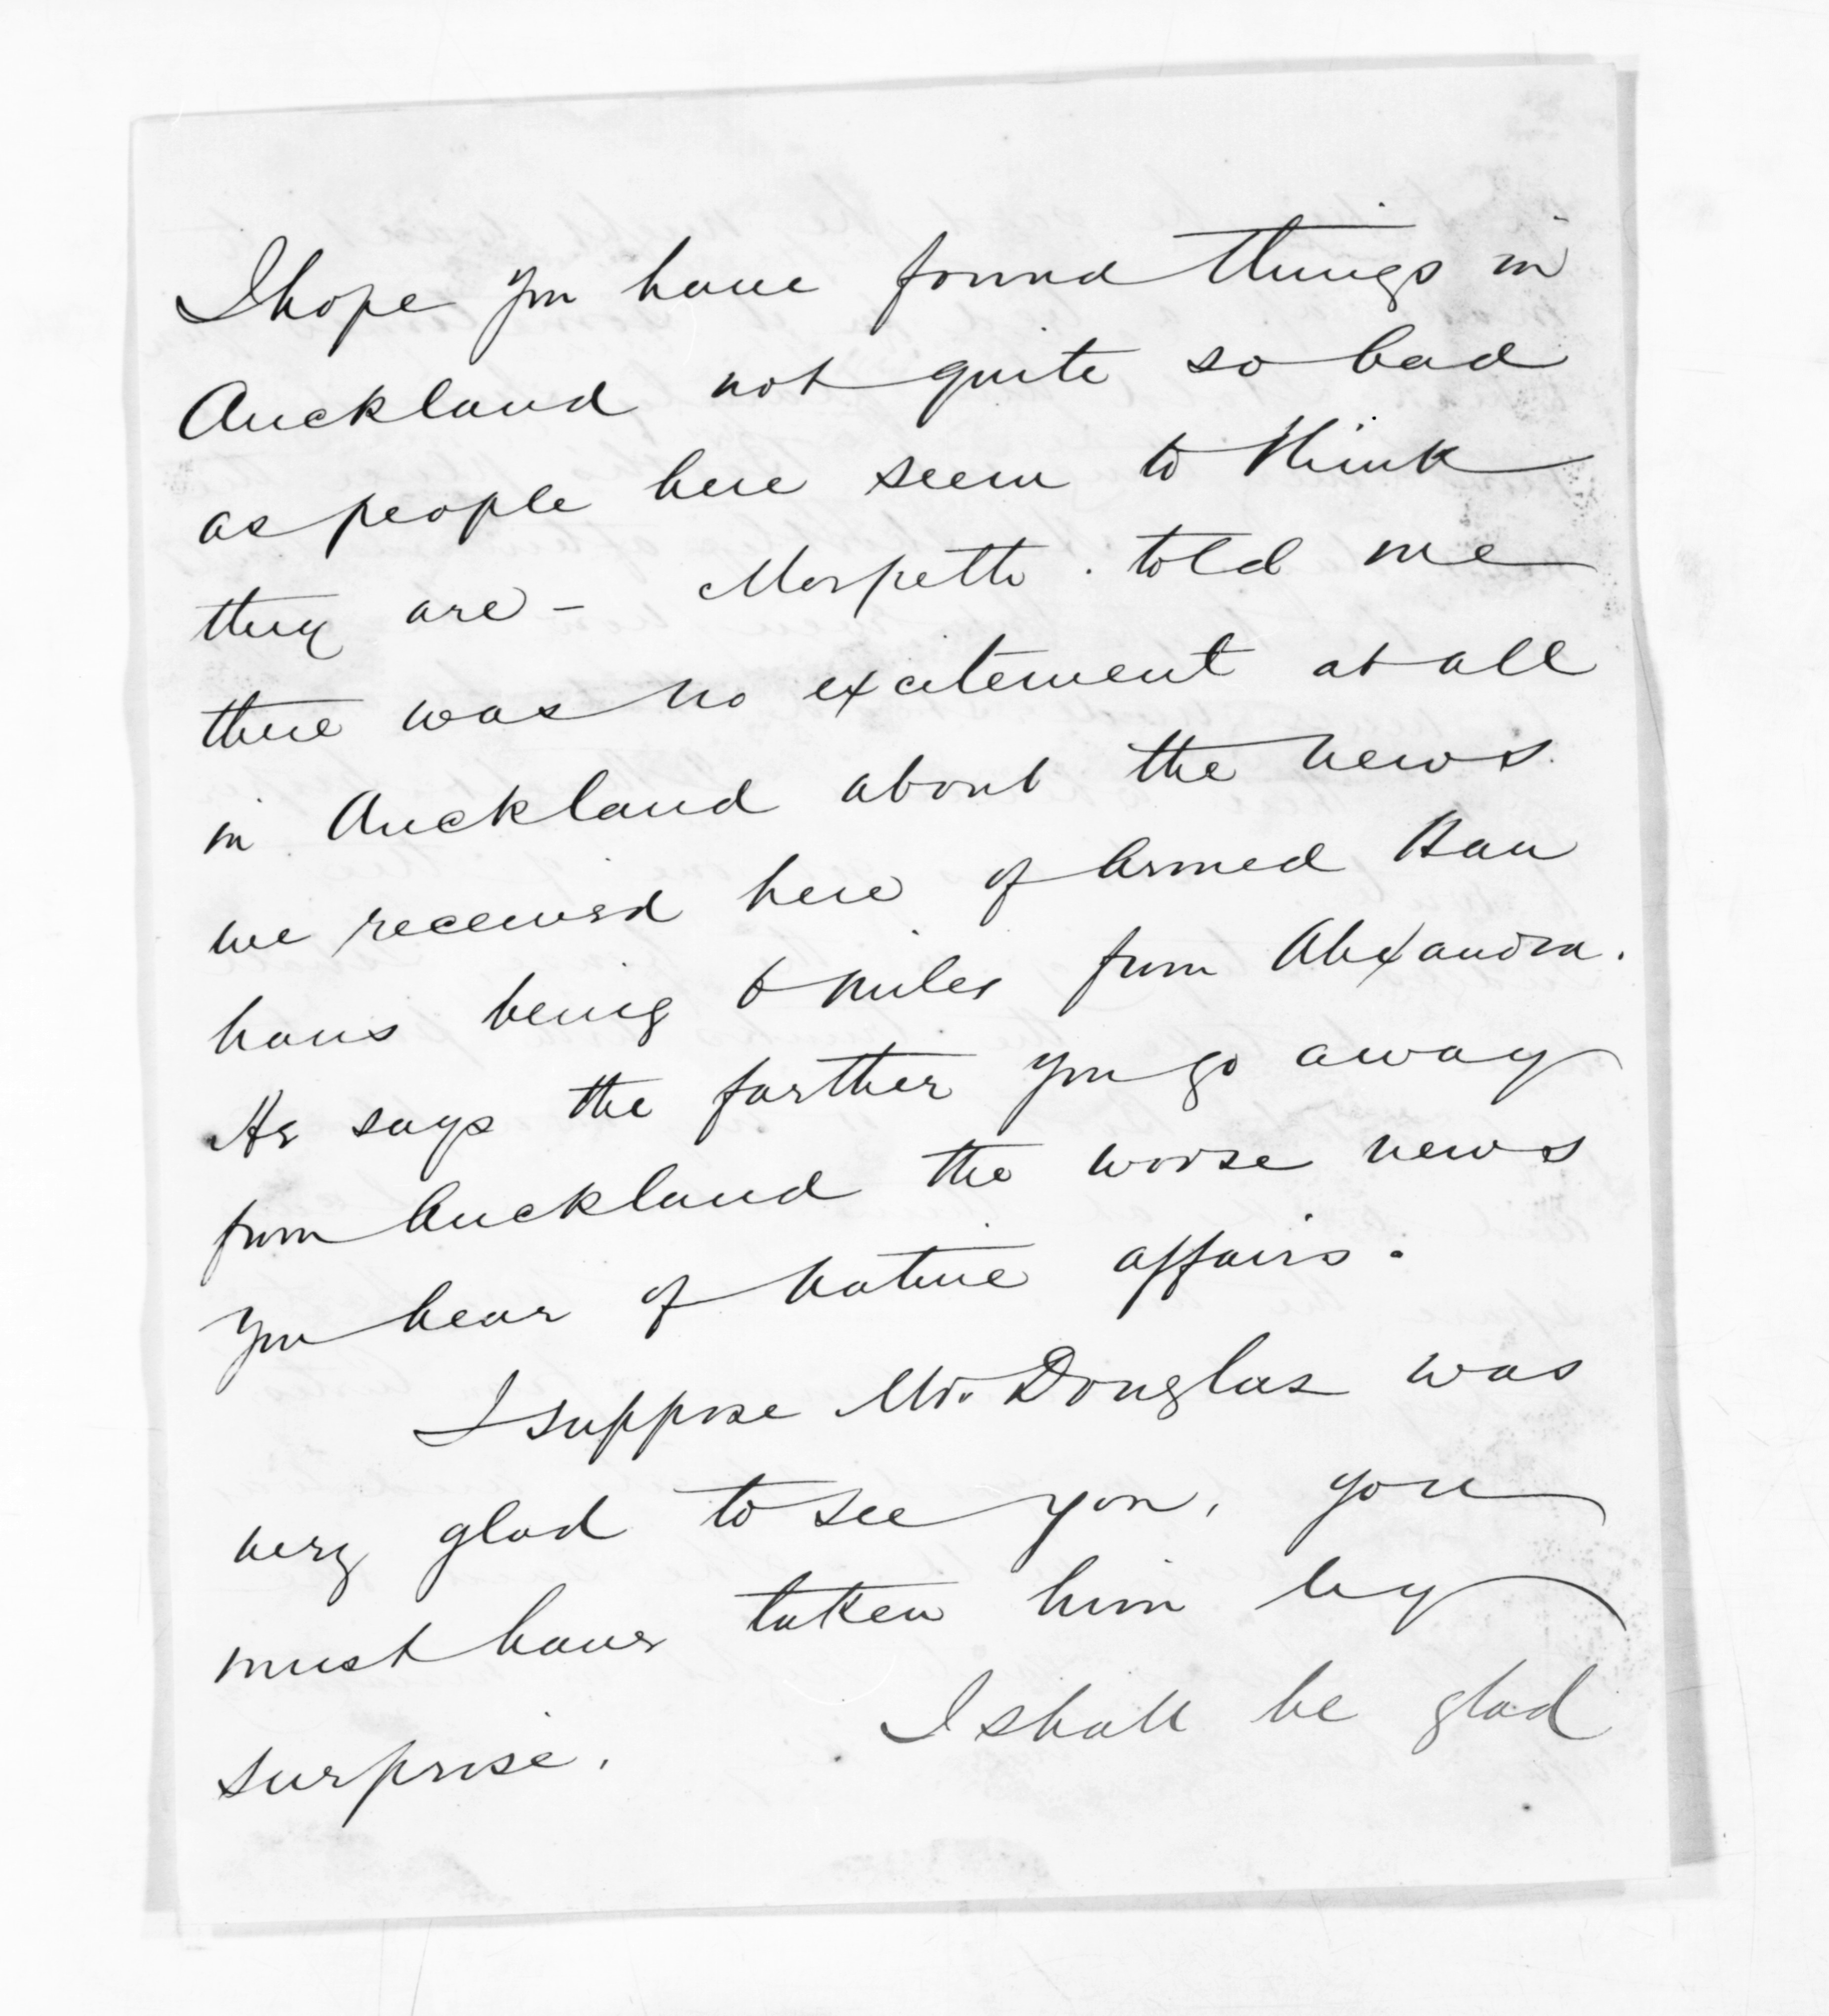 I hope you have found things in
Auckland not quite so bad
as people here seem to think
they are - Morpeth told me
there was no excitement at all
in Auckland about the news
we received here of Armed Hau
haus being 6 miles from Alexandra.
He says the farther you go away
from Auckland the worse news
you hear of Native affairs.
I suppose Mr. Douglas was
very glad to see you, you
must have taken him by
surprise. I shall be glad